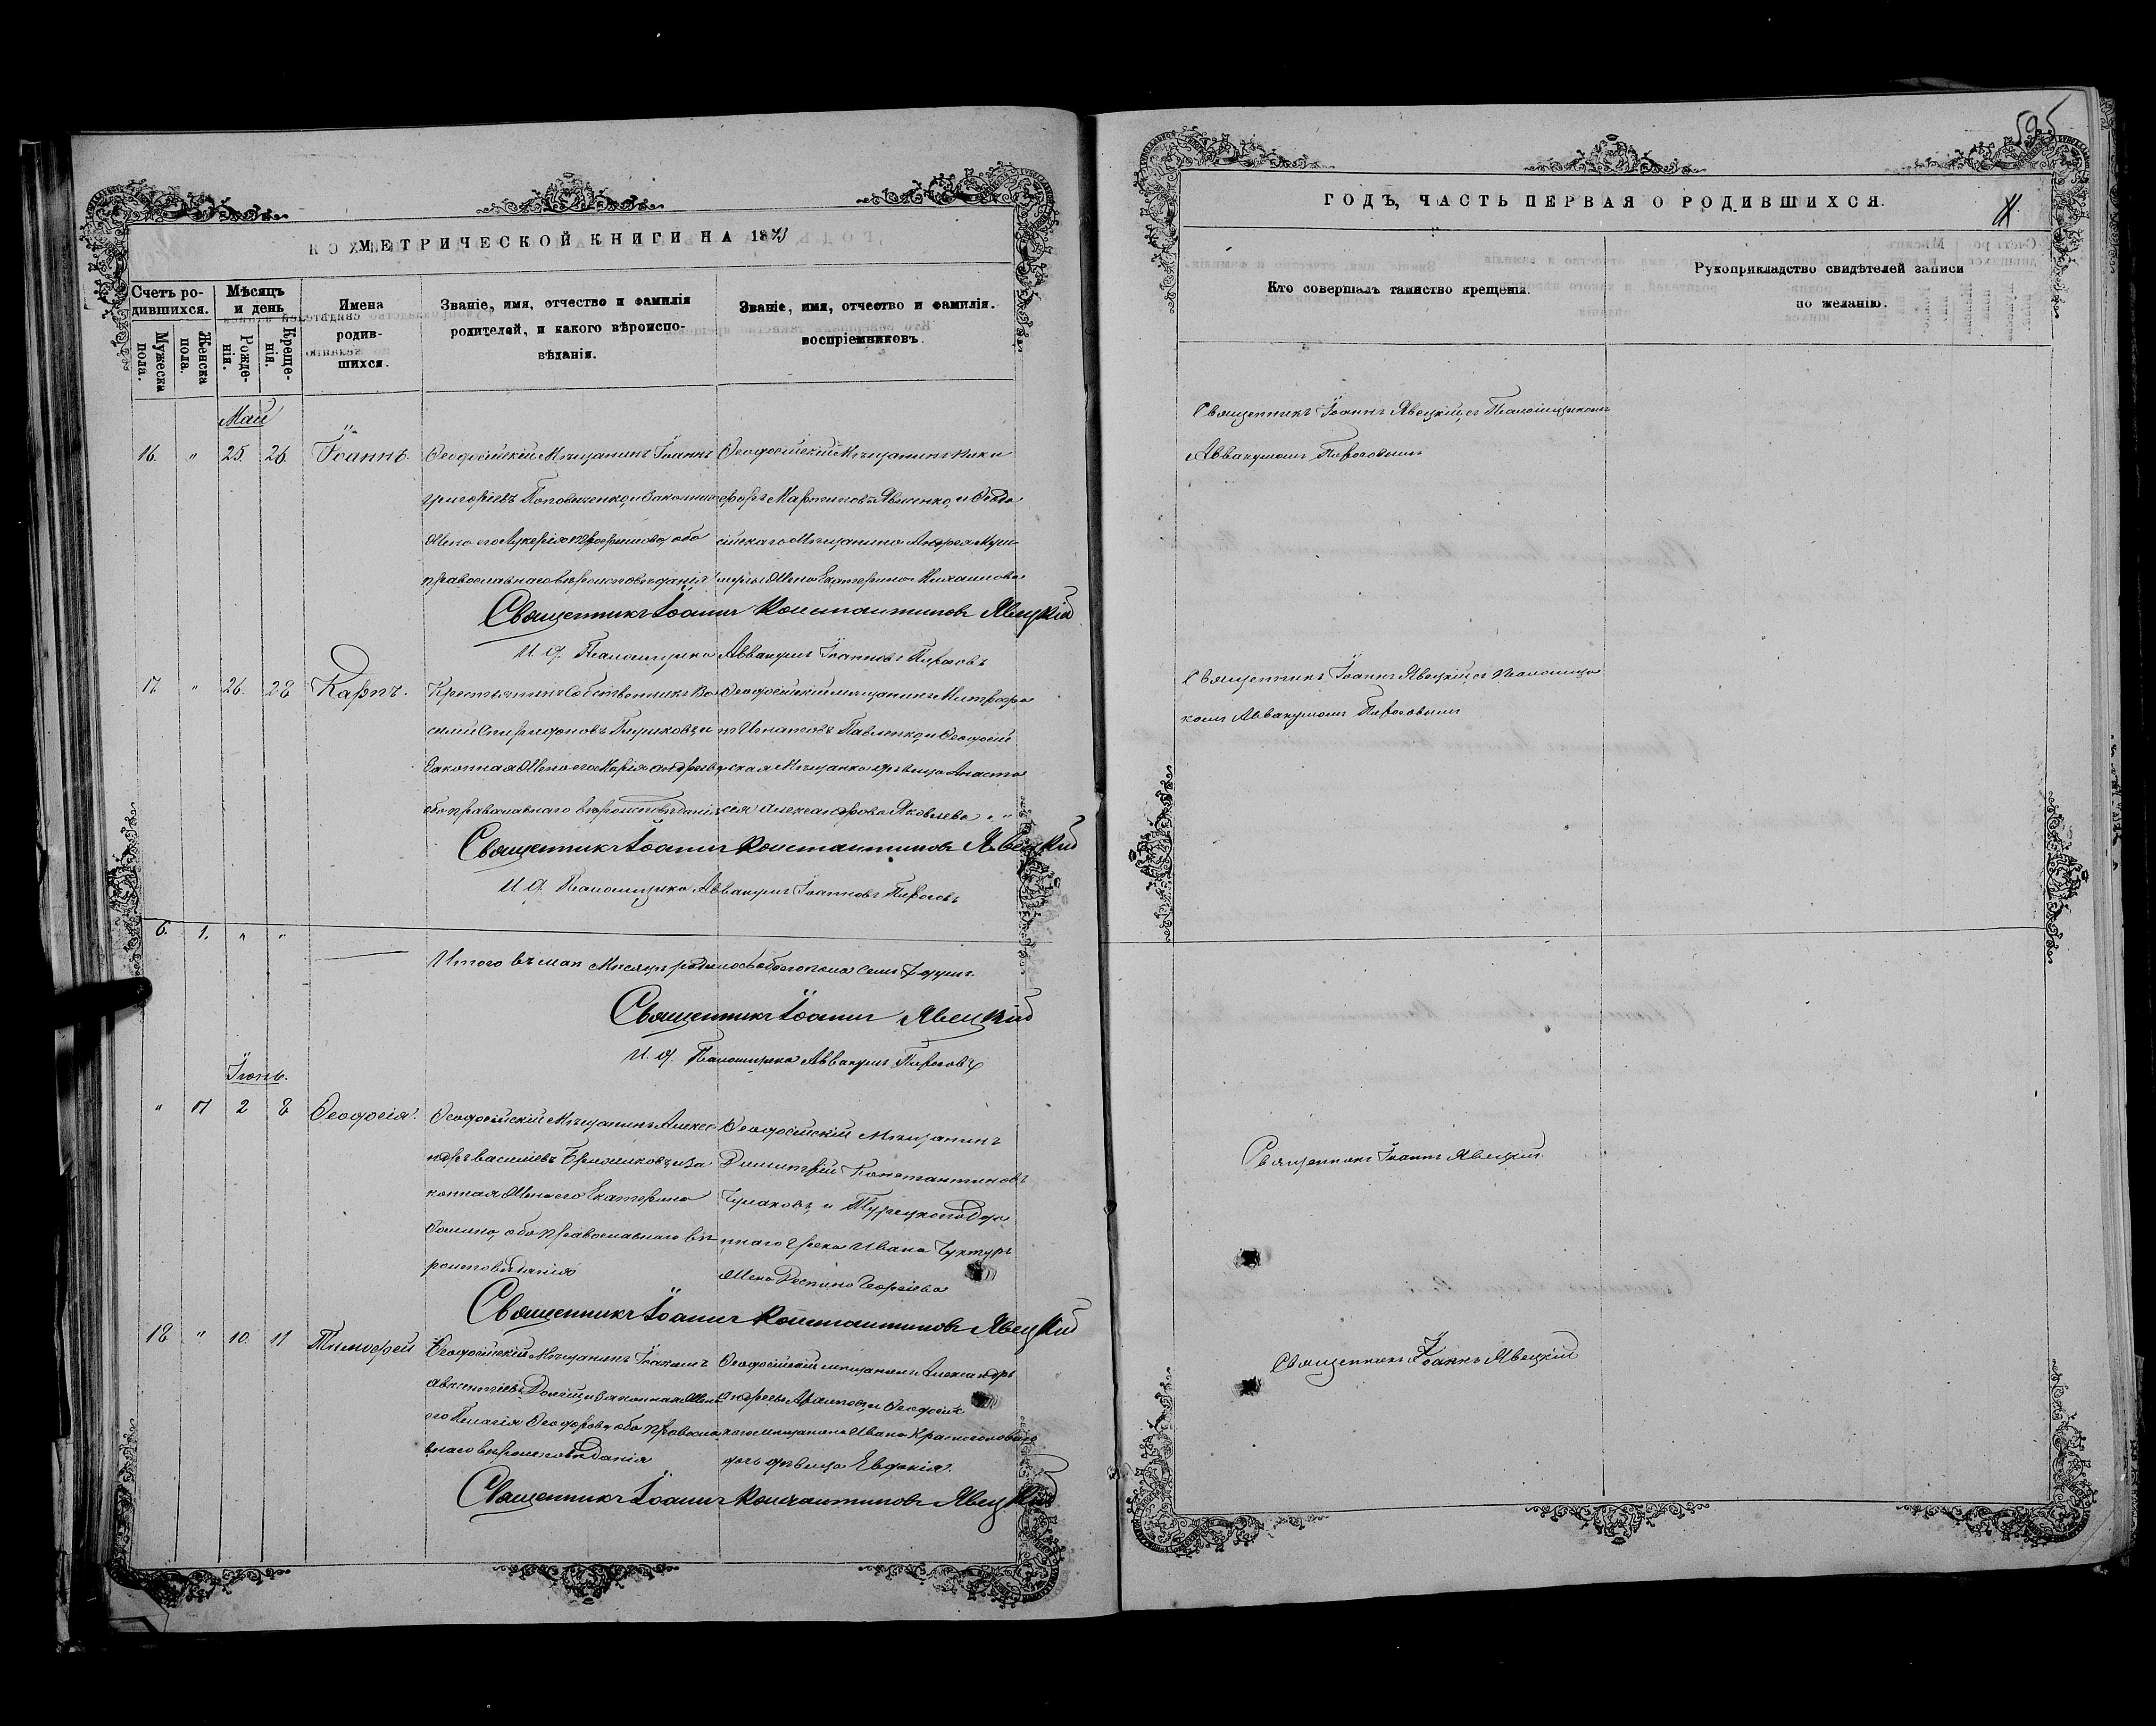 595
МЕТРИЧЕСКОЙ КНИГИ НА 1873
ГОДЪ, ЧАСТЬ ПЕРВАЯ О РОДИВШИХСЯ.
Счетъ ро-
дившихся.
Мужеска
пола.
Женска
пола.
Мѣсяцъ
и день
Рожде-
нія.
Креще-
нія.
Имена
родив-
шихся.
Званіе, имя, отчество и фамилія
родителей, и какого вѣроиспо-
вѣданія.
Званіе, имя, отчество и фамилія.
воспріемниковъ.
Кто совершалъ таинство крещенія.
Рукоприкладство свидѣтелей записи
по желанію.
Май
16. " 25. 26. Іоаннъ.
Ѳеодосійскій Мѣщанинъ Іоаннъ
Григоріевъ Поповиченко, и законная
Жена его Лукерія Трофимова, оба
православнаго вѣроисповѣданія
Ѳеодосійскій Мѣщанинъ Ники
форъ Мартиновъ Явменко, и Ѳеодо
сійскаго Мѣщанина Андрея
Жена Екатерина
Священникъ Іоаннъ Явецкій, съ Псаломщикомъ
Аввакумомъ Пироговымъ
Священникъ Іоаннъ Константиновъ Явецкій
И. д. Псаломщика Аввакумъ Іоанновъ Пироговъ
17. " 26. 28 Карпъ.
Крестьянинъ Собственникъ Ва
силій Спиридоновъ и
Законная Жена его Марія Андреева
оба православнаго вѣроисповѣданія
Ѳеодосійскій мѣщанинъ Митрофа
нъ Игнатовъ Павленко, и Ѳеодосій
ская Мѣщанка дѣвица Анаста
сія Александрова Яковлева " "
Священникъ Іоаннъ Явецкій съ Псаломщи
комъ Аввакумомъ Пироговымъ
Священникъ Іоаннъ Константиновъ Явецкій
И. д. Псаломщика Аввакумъ Іоанновъ Пироговъ
6. 1. " "
Итого въ маѣ Мѣсяцѣ родилось обоего пола семь душъ.
Священникъ Іоаннъ Явецкій
И. д. Псаломщика Аввакумъ Пироговъ
Іюнь.
" 17 2 8 Ѳеодосія.
Ѳеодосійскій Мѣщанинъ Алекса
ндръ Васильевъ и За
конная Жена его Екатерина
Фомина, оба православнаго вѣ
роисповѣданія
Ѳеодосійскій Мѣщанинъ
Димитрій Константиновъ
Чумаковъ, и Турецкоподда
ннаго Грека Ивана
Жена Деспина Георгіева
Священникъ Іоаннъ Явецкій.
Священникъ Іоаннъ Константиновъ Явецкій
18 " 10. 11 Тимофей
Ѳеодосійскій Мѣщанинъ Іоакимъ
Авксентіевъ и законная Жена
его Пелагія Ѳеодорова, оба православ
наго вѣроисповѣданія
Ѳеодосійскій мѣщанинъ Александръ
Андреевъ и Ѳеодосійс
каго мѣщанина Ивана
дочь дѣвица Евдокія.
Священникъ Іоаннъ Явецкій
Священникъ Іоаннъ Константиновъ Явецкій